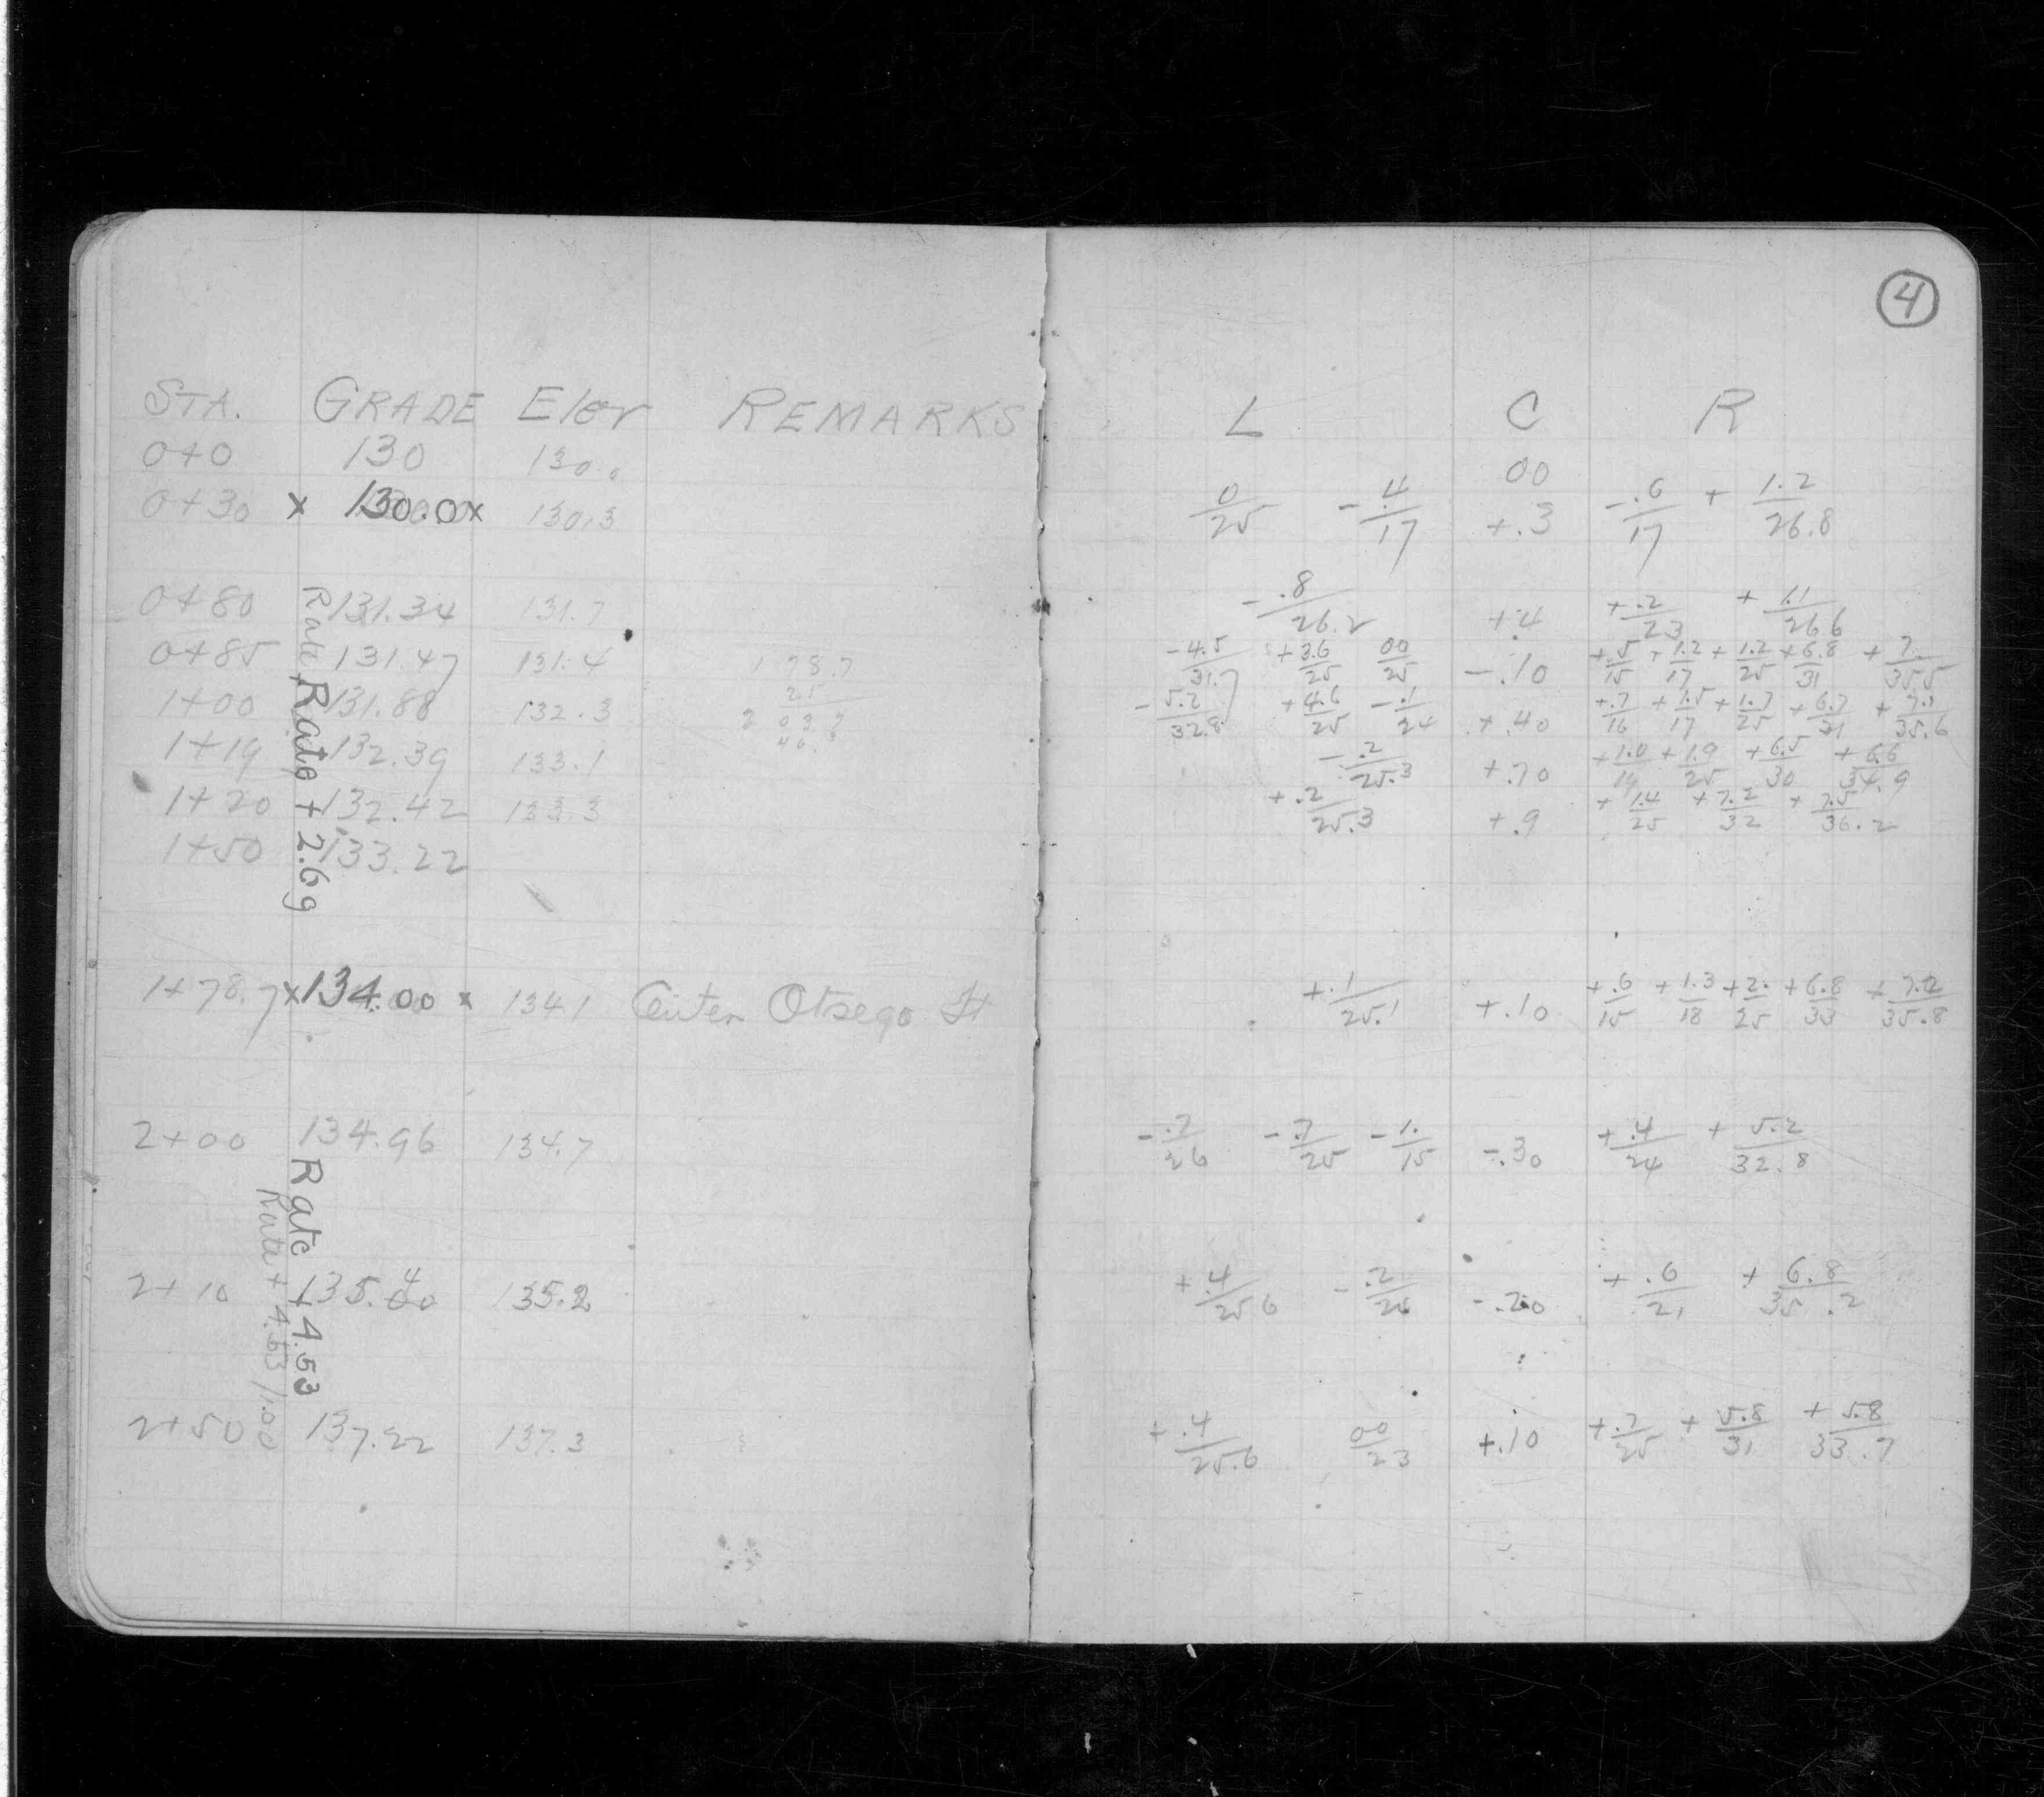 4
STA. GRADE Elev REMARKS L C R
0+0 130 130.0 00
0+30 x 130.0 x 130.3 0/25 -.4/17 +.3 -.6/17 + 1.2/26.8
0+80 131.34 131.7 -.8/26.2 +.4 +.2/23 + 1.1/26.6
0+85 131.47 131.4 1 78.7 -4.5/31.7 +3.6/25 00/25 -.10 +.5/15 +1.2/17 +1.2/25 +6.8/31 +7./35.5
25
1+00 131.88 132.3 2 03.7 -5.2/32.8 +4.6/25 -.1/24 +.40 +.7/16 +1.5/17 +1.7/25 +6.7/31 +7.1/35.6
1+19 132.39 133.1 -.2/25.3 +.70 +1.0/19 +1.9/25 +6.5/30 +6.6/34.9
1+20 132.42 133.3 +.2/25.3 +.9 +1.4/25 +7.2/32 +7.5/36.2
1+50 133.22
Rate + 2.69
1+78.7 x 134.00 x 134.1 Center Otsego St +.1/25.1 +.10 +.6/15 +1.3/18 +2./25 +6.8/33 +7.2/35.8
2+00 134.96 134.7 -.7/26 -.7/25 -1./15 -.30 +.4/24 + 5.2/32.8
2+10 135.40 135.2 +.4/25.6 -.2/25 -.20 +.6/21 + 6.8/35.2
2+50 137.22 137.3 +.4/25.6 00/23 +.10 +.7/25 + 5.8/31 + 5.8/33.7
Rate + 4.53
Rate + 4.53/1.00